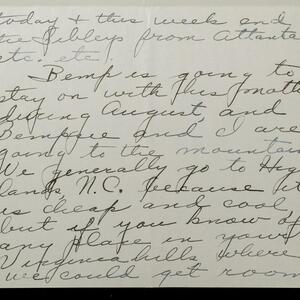 today + this week end
the Sibleys from Atlanta
etc. etc.
Bemp is going to
stay on with his moth
during August, and
Bempsie and I are
going to the mountain
We generally go to Hig
lands N.C. because it
is cheap and cool
but if you know of
any place in your
Virginia hills where
we could get room